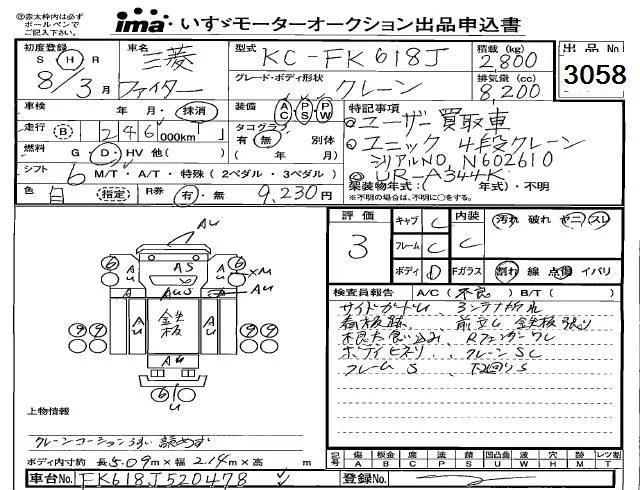 ◎赤太枠内は必ず
ボールペンで
ご記入下さい。
ima いすゞモーターオークション出品申込書
初度登録 車名 型式 積載 (kg) 出品No
S H R 三菱 KC-FK618J 2800
8/3月 ファイター グレード・ボディ形状 クレーン 排気量 (cc) 8,200 3058
車検 年・月・抹消 装備 AC・PS・PW 特記事項
走行 (B) 246 000km タコグラフ 別体 ユーザー買取車
有・無 ユニック 4段クレーン
燃料 G・D・HV 他( ) ( 年 月) シリアルNO, N602610
シフト 6 M/T・A/T・特殊 (2ペダル・3ペダル) UR-A344K
架装物年式:( 年式)・不明
色 白 (指定) R券 有・無 9,230円 ※不明の場合は、不明に○をする。
評価 キャブ C 内装 汚れ 破れ ヤニ スレ
3 フレーム C C
ボディ D Fガラス 割れ 線 点傷 イバリ
検査員報告 A/C( 不良 ) B/T( )
サイドガード
看板跡 前立し 鉄板張り
木良た食い込み, Rフェンダー
ボディ クレーン SC
フレーム S 下回り S
AU
⑥ AS ⑥ XM
A U A U S A U AU
⑨⑨ A U 鉄板 A U A U ⑨⑨
AU
⑥
U
上物情報
クレーンコーション 読めず
ボディ内寸約 長5.09m×幅2.14m×高 m
記号 傷 板金 腐 塗 錆 凹凸曲 波 穴 跡 レツ割
A B C P S U W H M T
車台No. FK618J520478 登録No.